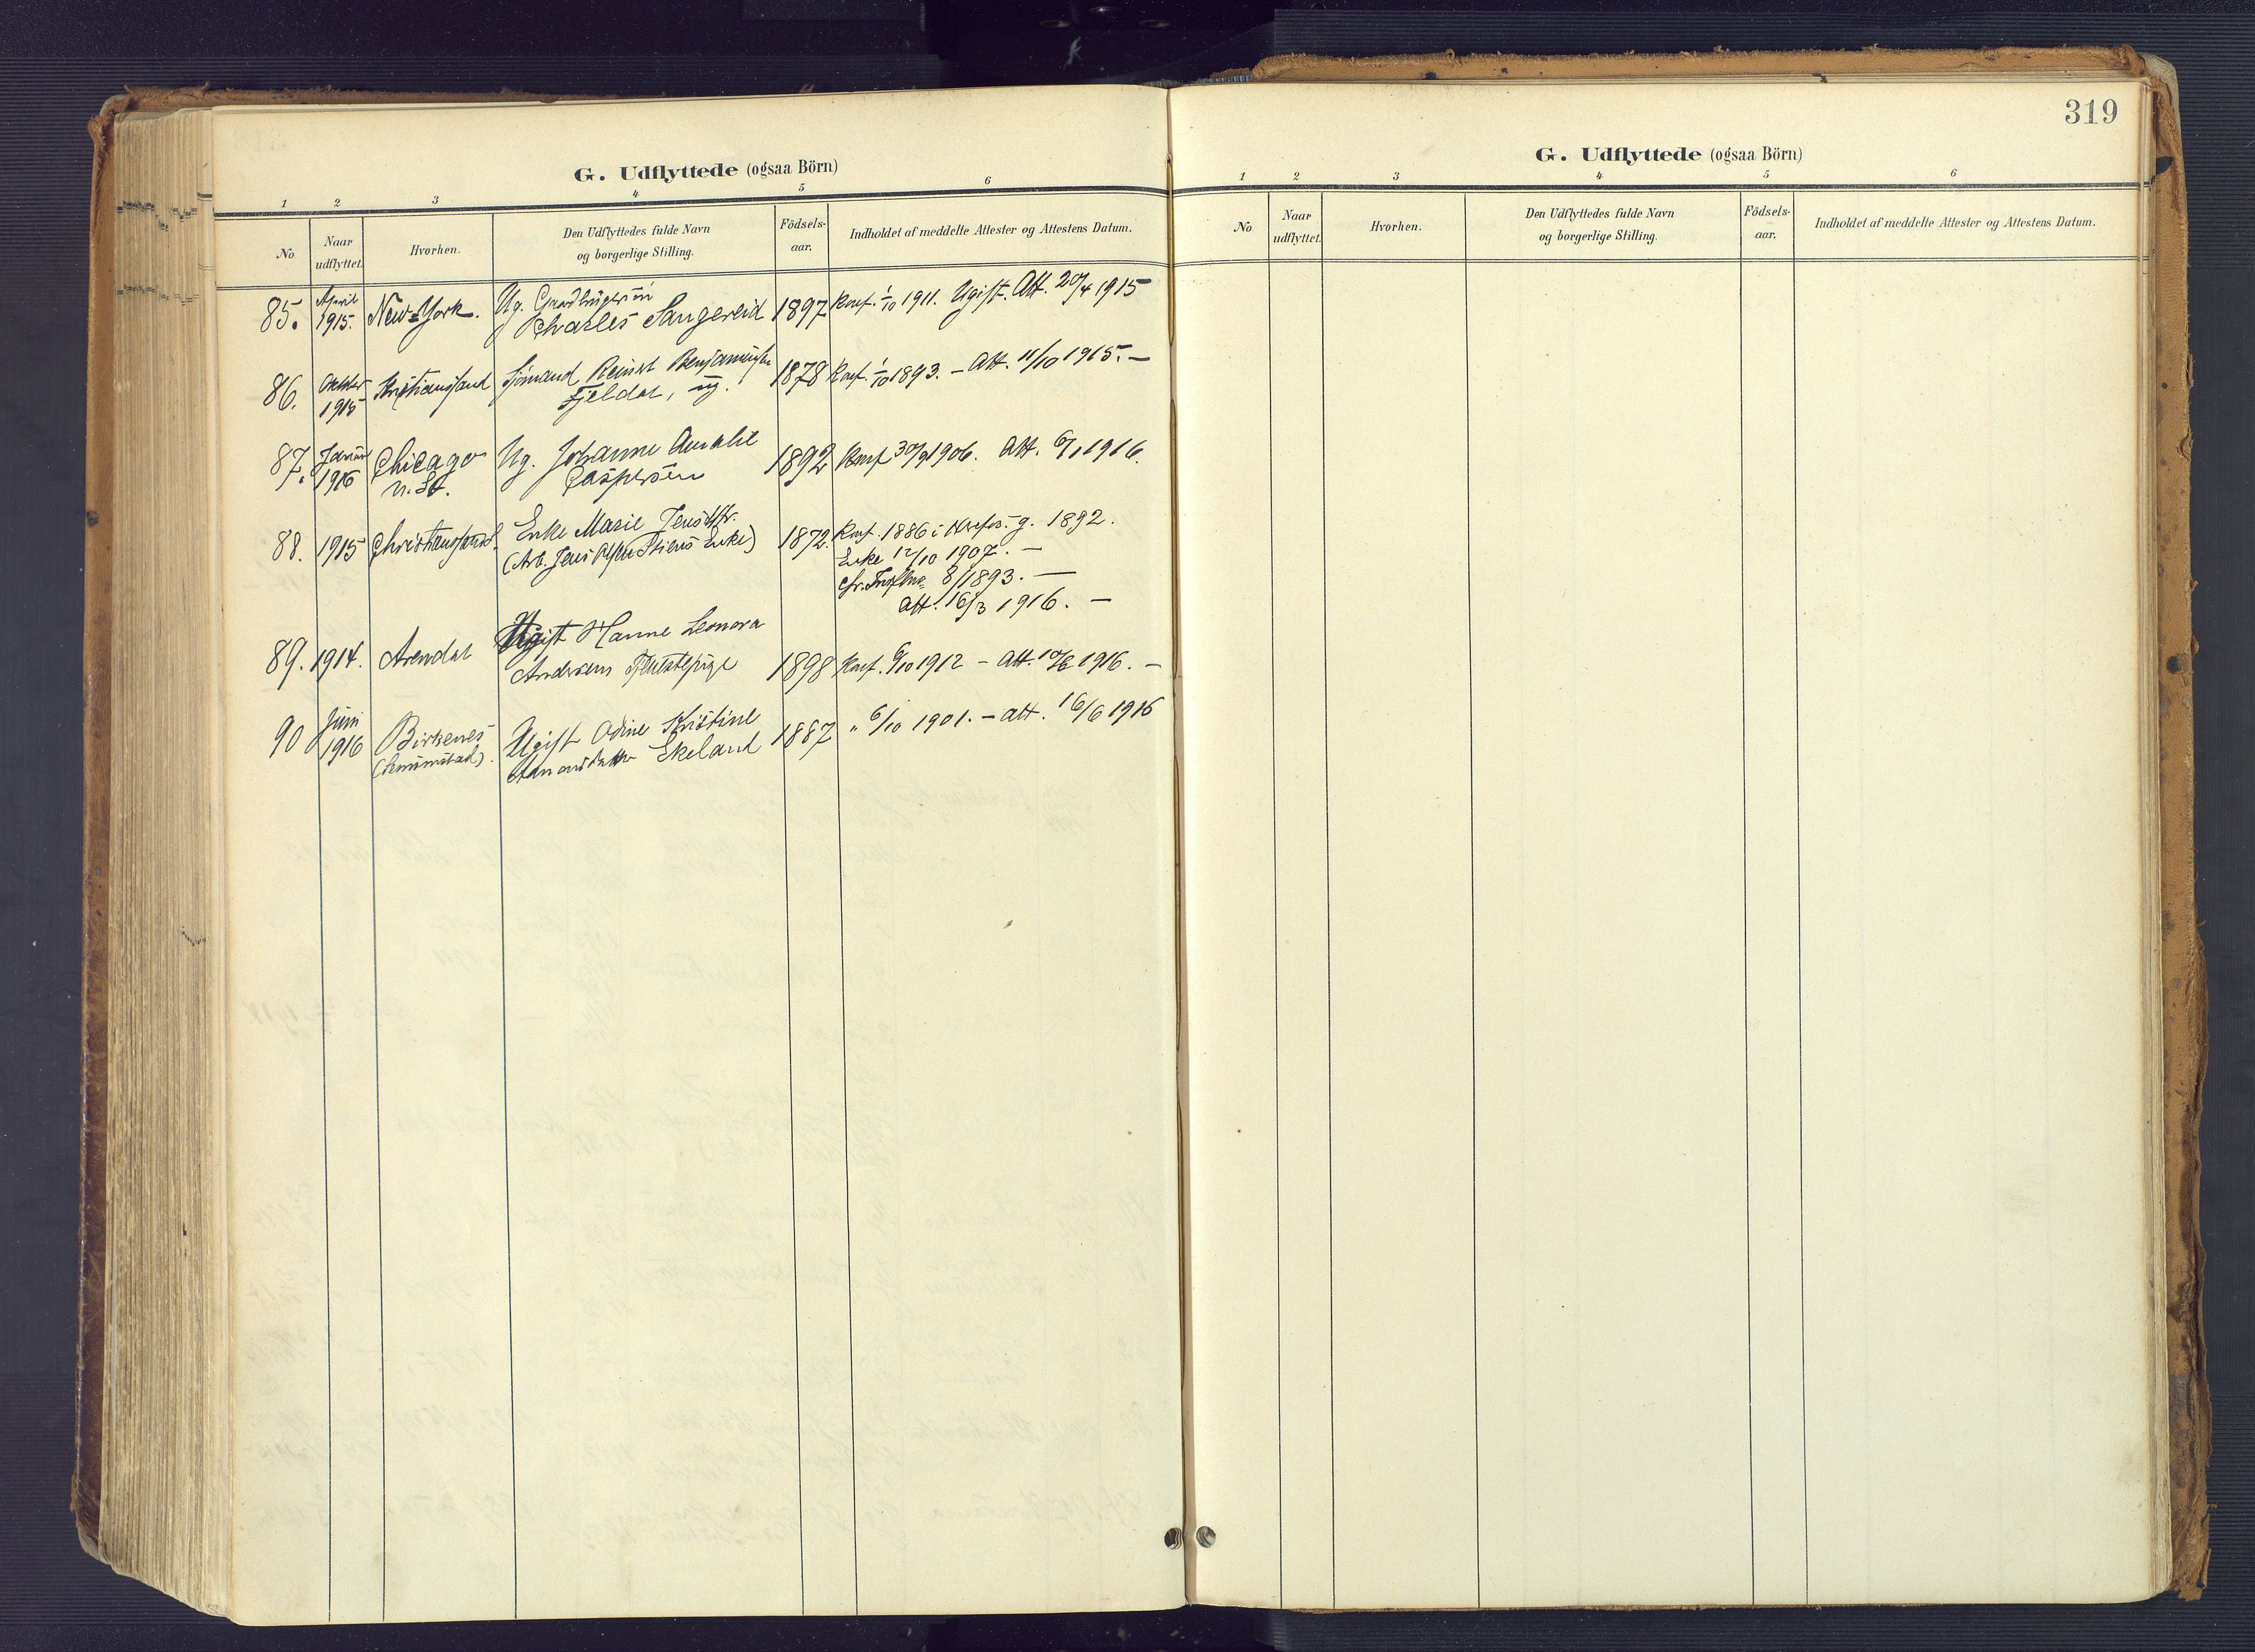 G. Udflyttede (ogsaa Börn)
1 2 3 4 5 6
No
Naar udflyttet.
Hvorhen.
Den Udflyttedes fulde Navn og borgerlige Stilling.
Födsels-aar.
Indholdet af meddelte Attester og Attestens Datum.
85. April 1915. New-York. Ug. Charles Sangereid 1897 Konf. 1/10 1911. Ugift. Att. 20/4 1915
86. Oktober 1915 Kristianssand Sjømand Reinert Benjaminsen Fjeldal, ug. 1878 Konf. 1/10 1893. – Att. 11/10 1915. –
87. Januar 1916 Chicago N. St. Ug. Johanne Amalie Caspersen 1892 Konf 30/9 1906. Att. 6/1 1916.
88. 1915 Christianssand Enke Marie Jensdtr. (Arb. Jens Enke) 1872. Konf. 1886 i g. 1892.
Enke 12/10 1907. –
8/1893. –
Att. 16/3 1916. –
89. 1914. Arendal Ugift Hanne Leonora Andersen Tjenestepige 1898 Konf. 6/10 1912 – Att. 10/6 1916. –
90 Juni 1916 Birkenes Ugift Adine Kristine Ekeland 1887 " 6/10 1901. – Att. 16/6 1916
319
G. Udflyttede (ogsaa Börn)
1 2 3 4 5 6
No
Naar udflyttet.
Hvorhen.
Den Udflyttedes fulde Navn og borgerlige Stilling.
Födsels-aar.
Indholdet af meddelte Attester og Attestens Datum.